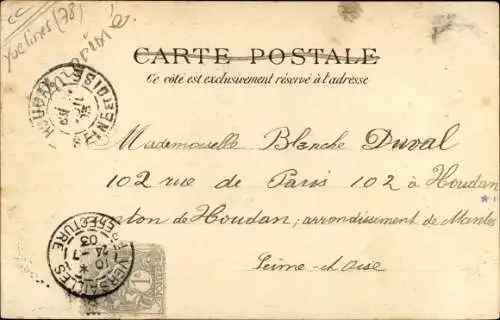 Yvelines (78)
CARTE POSTALE
Ce côté est exclusivement réservé à l'adresse
Mademoiselle Blanche Duval
102 rue de Paris 102 à Houdan
canton de Houdan; arrondissement de Mantes
Seine-et-Oise
VERSAILLES
PREFECTURE
24 -7
03